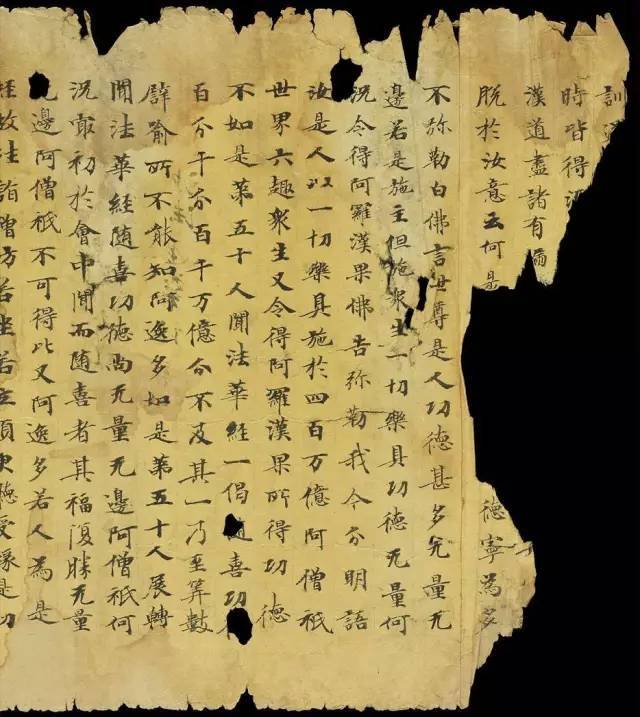 訓
時皆得
漢道盡諸有
脫於汝意云何是德寧為多
不弥勒白佛言世尊是人功德甚多无量无
邊若是施主但施衆生一切樂具功德无量何
況令得阿羅漢果佛告弥勒我今分明語
汝是人以一切樂具施於四百万億阿僧祇
世界六趣衆生又令得阿羅漢果所得功德
不如是第五十人聞法華經一偈随喜功
百分千分百千万億分不及其一乃至筭數
譬喻所不能知阿逸多如是第五十人展轉
聞法華經随喜功德尚无量无邊阿僧祇何
況冣初於會中聞而随喜者其福復勝无量
邊阿僧祇不可得比又阿逸多若人為是
經故往詣僧坊若坐若立須臾聽受緣是功